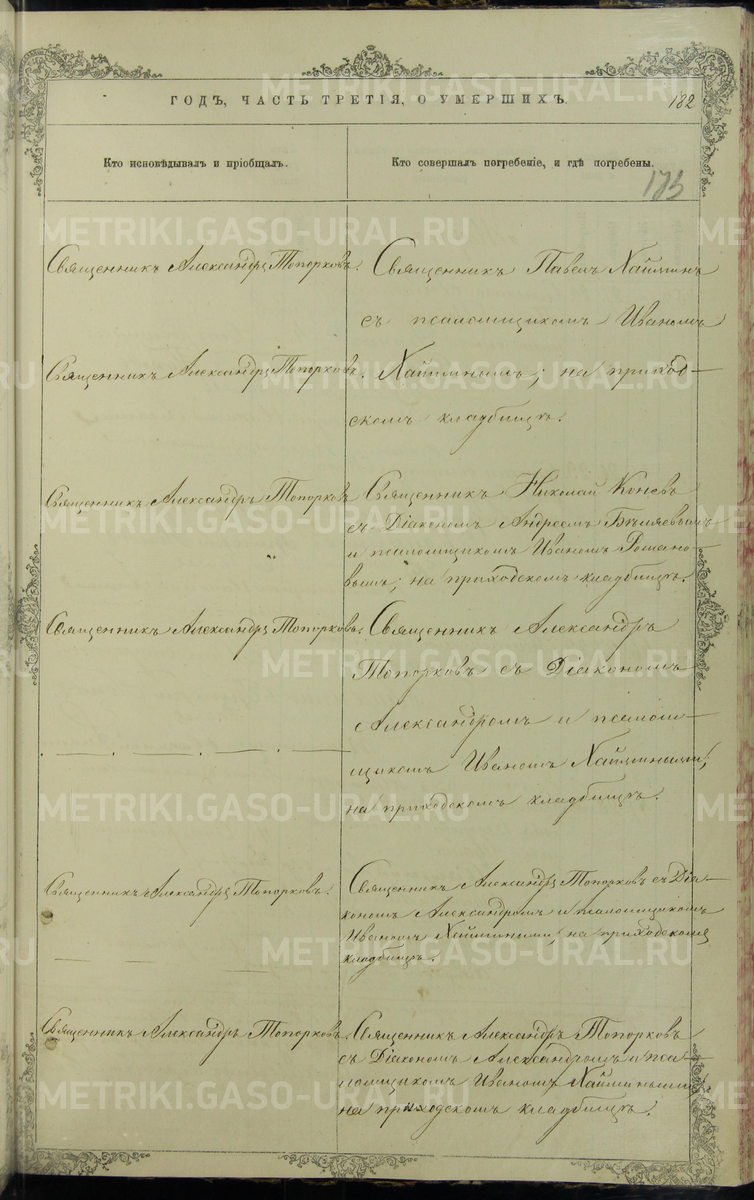 ГОДЪ, ЧАСТЬ ТРЕТІЯ, О УМЕРШИХЪ.
182
Кто исповѣдывалъ и пріобщалъ.
Кто совершалъ погребеніе, и гдѣ погребены.
175
Священникъ Александръ Топорковъ.
Священникъ Павелъ Найминъ
съ псаломщикомъ Иваномъ
Священникъ Александръ Топорковъ.
Найминымъ; на приход-
скомъ кладбищѣ.
Священникъ Александръ Топорковъ
Священникъ Николай Коневъ
съ Діакономъ Андреемъ Бѣляевымъ
и псаломщикомъ Иваномъ Романо-
вымъ; на приходскомъ кладбищѣ.
Священникъ Александръ Топорковъ.
Священникъ Александръ
Топорковъ съ Діакономъ
Александромъ и псалом-
щикомъ Иваномъ Наймиными;
на приходскомъ кладбищѣ.
Священникъ Александръ Топорковъ.
Священникъ Александръ Топорковъ съ Діа-
кономъ Александромъ и псаломщикомъ
Иваномъ Наймиными; на приходскомъ
кладбищѣ.
Священникъ Александръ Топорковъ.
Священникъ Александръ Топорковъ
съ Діакономъ Александромъ и пса-
ломщикомъ Иваномъ Наймиными
на приходскомъ кладбищѣ.
METRIKI.GASO-URAL.RU